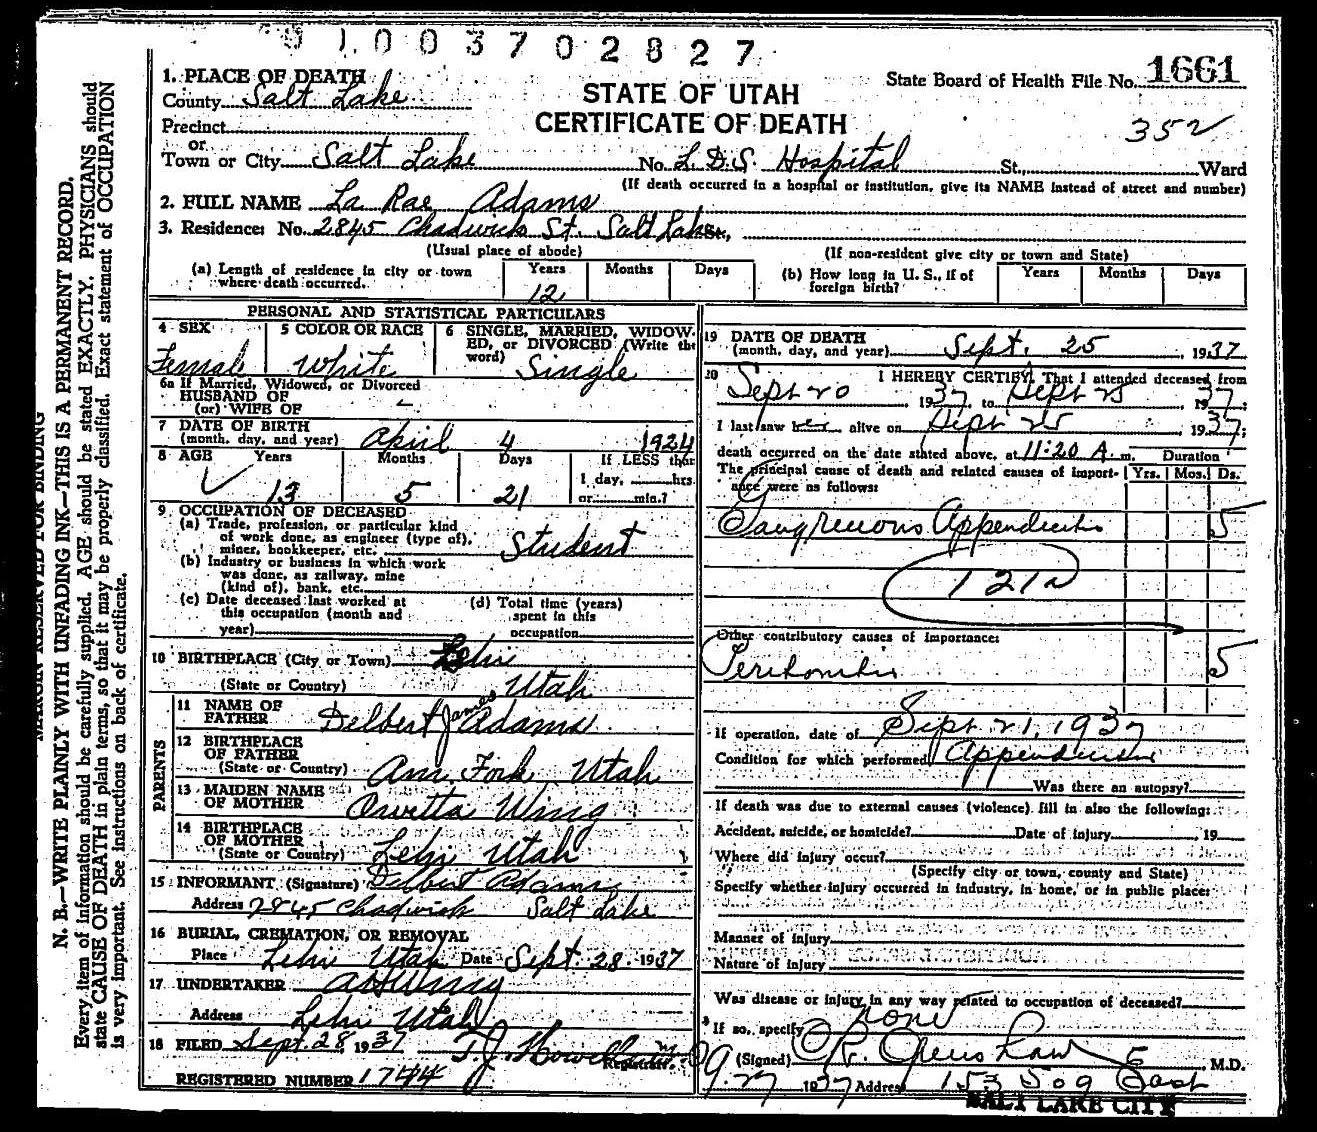 9 1 0 0 3 7 0 2 8 2 7
State Board of Health File No. 1661
STATE OF UTAH
CERTIFICATE OF DEATH
352
1. PLACE OF DEATH
County Salt Lake
Precinct
or
Town or City Salt Lake No. L.D.S. Hospital St., Ward
(If death occurred in a hospital or institution, give its NAME instead of street and number)
2. FULL NAME La Rae Adams
3. Residence: No. 2845 Chadwick St. Salt Lake St.,
(Usual place of abode) (If non-resident give city or town and State)
(a) Length of residence in city or town where death occurred. Years 12 Months Days
(b) How long in U. S., if of foreign birth? Years Months Days
PERSONAL AND STATISTICAL PARTICULARS
4 SEX Female
5 COLOR OR RACE White
6 SINGLE, MARRIED, WIDOWED, or DIVORCED (Write the word) Single
6a If Married, Widowed, or Divorced
HUSBAND OF
(or) WIFE OF -
7 DATE OF BIRTH
(month, day, and year) April 4 1924
8 AGE Years 13 Months 5 Days 21
If LESS than
1 day, hrs.
or min.?
9 OCCUPATION OF DECEASED
(a) Trade, profession, or particular kind
of work done, as engineer (type of),
miner, bookkeeper, etc. Student
(b) Industry or business in which work
was done, as railway, mine
(kind of), bank, etc.
(c) Date deceased last worked at
this occupation (month and
year)
(d) Total time (years)
spent in this
occupation
10 BIRTHPLACE (City or Town) Lehi
(State or Country) Utah
PARENTS
11 NAME OF FATHER Delbert James Adams
12 BIRTHPLACE OF FATHER
(State or Country) Am. Fork Utah
13 MAIDEN NAME OF MOTHER Orvetta Wing
14 BIRTHPLACE OF MOTHER
(State or Country) Lehi Utah
15 INFORMANT (Signature) Delbert Adams
Address 2845 Chadwick Salt Lake
16 BURIAL, CREMATION, OR REMOVAL
Place Lehi Utah Date Sept. 28 1937
17 UNDERTAKER
Address Lehi Utah
18 FILED Sept. 28, 1937 T. J. Howells Registrar.
REGISTERED NUMBER 1744
19 DATE OF DEATH
(month, day, and year) Sept. 25 1937
20 I HEREBY CERTIFY, That I attended deceased from
Sept 20 1937 to Sept 25 1937;
I last saw her alive on Sept 25 1937;
death occurred on the date stated above, at 11:20 A. m. Duration
The principal cause of death and related causes of importance were as follows: Yrs. Mos. Ds.
Gangrenous Appendicitis 5
121a
Other contributory causes of importance:
Peritonitis 5
If operation, date of Sept 21, 1937
Condition for which performed Appendicitis
Was there an autopsy?
If death was due to external causes (violence) fill in also the following:
Accident, suicide, or homicide? Date of injury 19
Where did injury occur?
(Specify city or town, county and State)
Specify whether injury occurred in industry, in home, or in public place:
Manner of injury
Nature of injury
Was disease or injury in any way related to occupation of deceased?
If so, specify none
(Signed) M.D.
9-27 1937 Address 153 So 9 East
SALT LAKE CITY
MARGIN RESERVED FOR BINDING
N. B.—WRITE PLAINLY WITH UNFADING INK—THIS IS A PERMANENT RECORD.
Every item of information should be carefully supplied. AGE should be stated EXACTLY. PHYSICIANS should
state CAUSE OF DEATH in plain terms, so that it may be properly classified. Exact statement of OCCUPATION
is very important. See instructions on back of certificate.